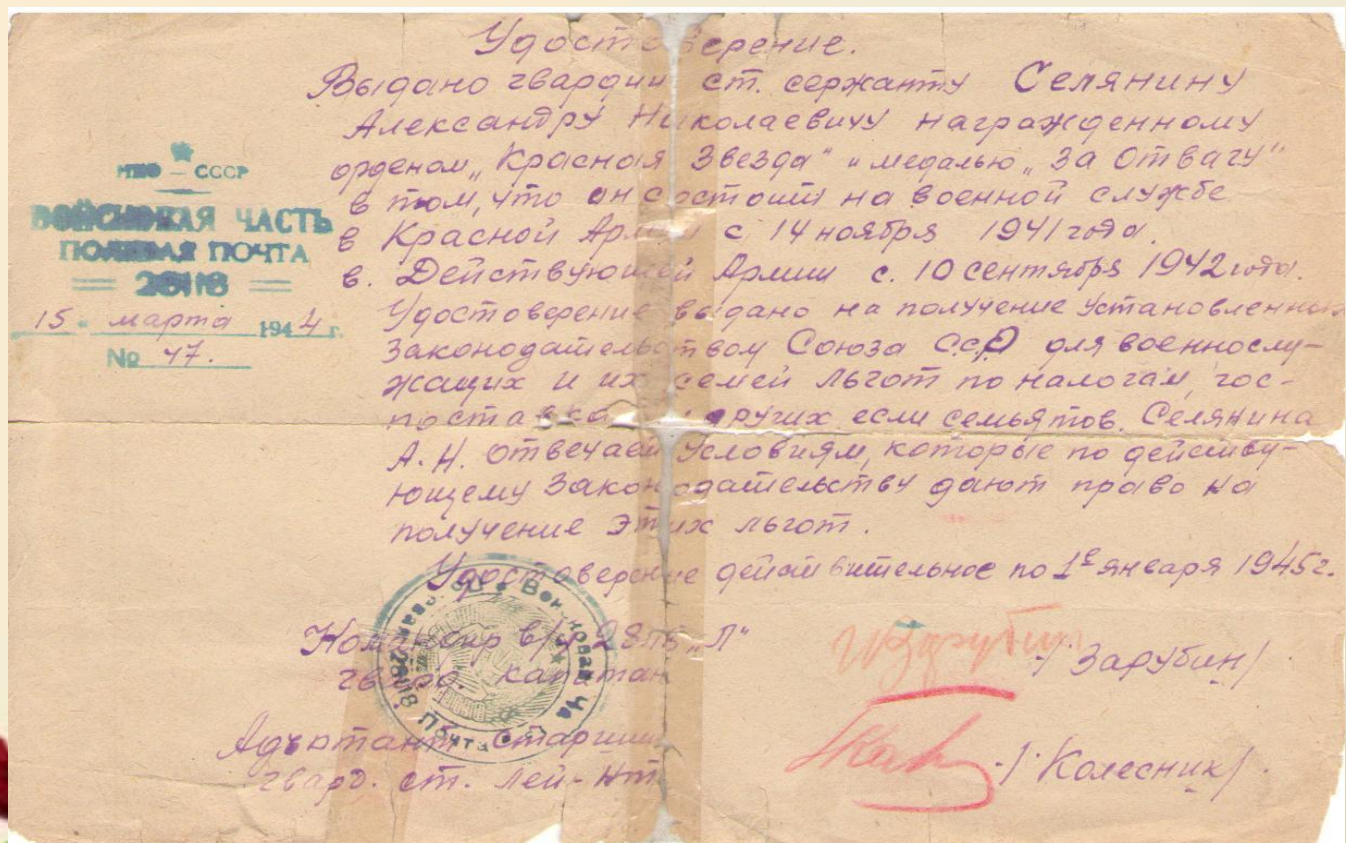 Удостоверение.
Выдано гвардии ст. сержанту Селянину
Александру Николаевичу награжденному
орденом „Красная Звезда" и медалью „За Отвагу"
в том, что он состоит на военной службе
в Красной Армии с 14 ноября 1941 года.
в. Действующей Армии с. 10 сентября 1942 года.
Удостоверение выдано на получение установленных
Законодательством Союза ССР для военнослу-
жащих и их семей льгот по налогам, гос-
поставкам и других если семья тов. Селянина
А. Н. отвечает условиям, которые по действу-
ющему Законодательству дают право на
получение этих льгот.
Удостоверение действительное по 1е января 1945г.
НКО — СССР
ВОЙСКОВАЯ ЧАСТЬ
ПОЛЕВАЯ ПОЧТА
28118
15 " марта 1944 г.
№ 47.
Командир в/ч „Л"
гвард. капитан /Зарубин/
Адъютант Старший
гвард. ст. лей-нт /Колесник/.
Почта 28118